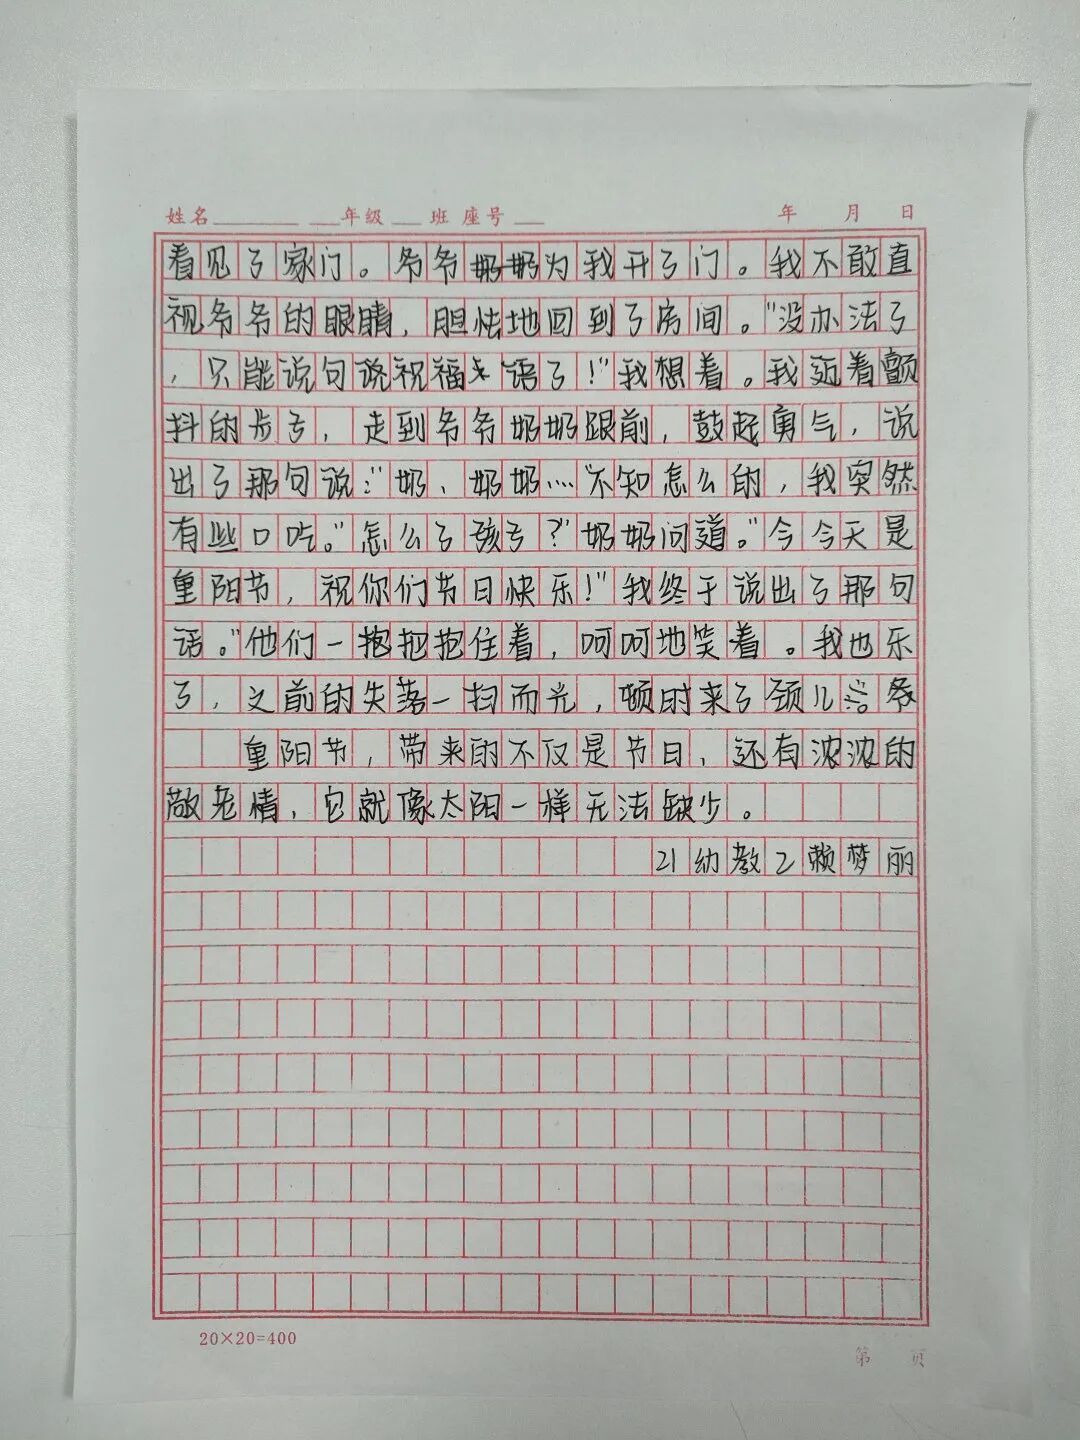 姓名 年级 班 座号 年 月 日
看见了家门。爷爷奶奶为我开了门。我不敢直
视爷爷的眼睛，胆怯地回到了房间。"没办法了
，只能说句说祝福 语了！"我想着。我迈着颤
抖的步子，走到爷爷奶奶跟前，鼓起勇气，说
出了那句说："奶、奶奶……"不知怎么的，我突然
有些口吃。"怎么了孩子？"奶奶问道。"今今天是
重阳节，祝你们节日快乐！"我终于说出了那句
话。"他们一抱把抱住着，呵呵地笑着。我也乐
了，之前的失落一扫而光，顿时来了颈儿。
重阳节，带来的不仅是节日，还有浓浓的
敬老情，它就像太阳一样无法缺少。
21幼教2赖梦丽
20×20=400
第 页